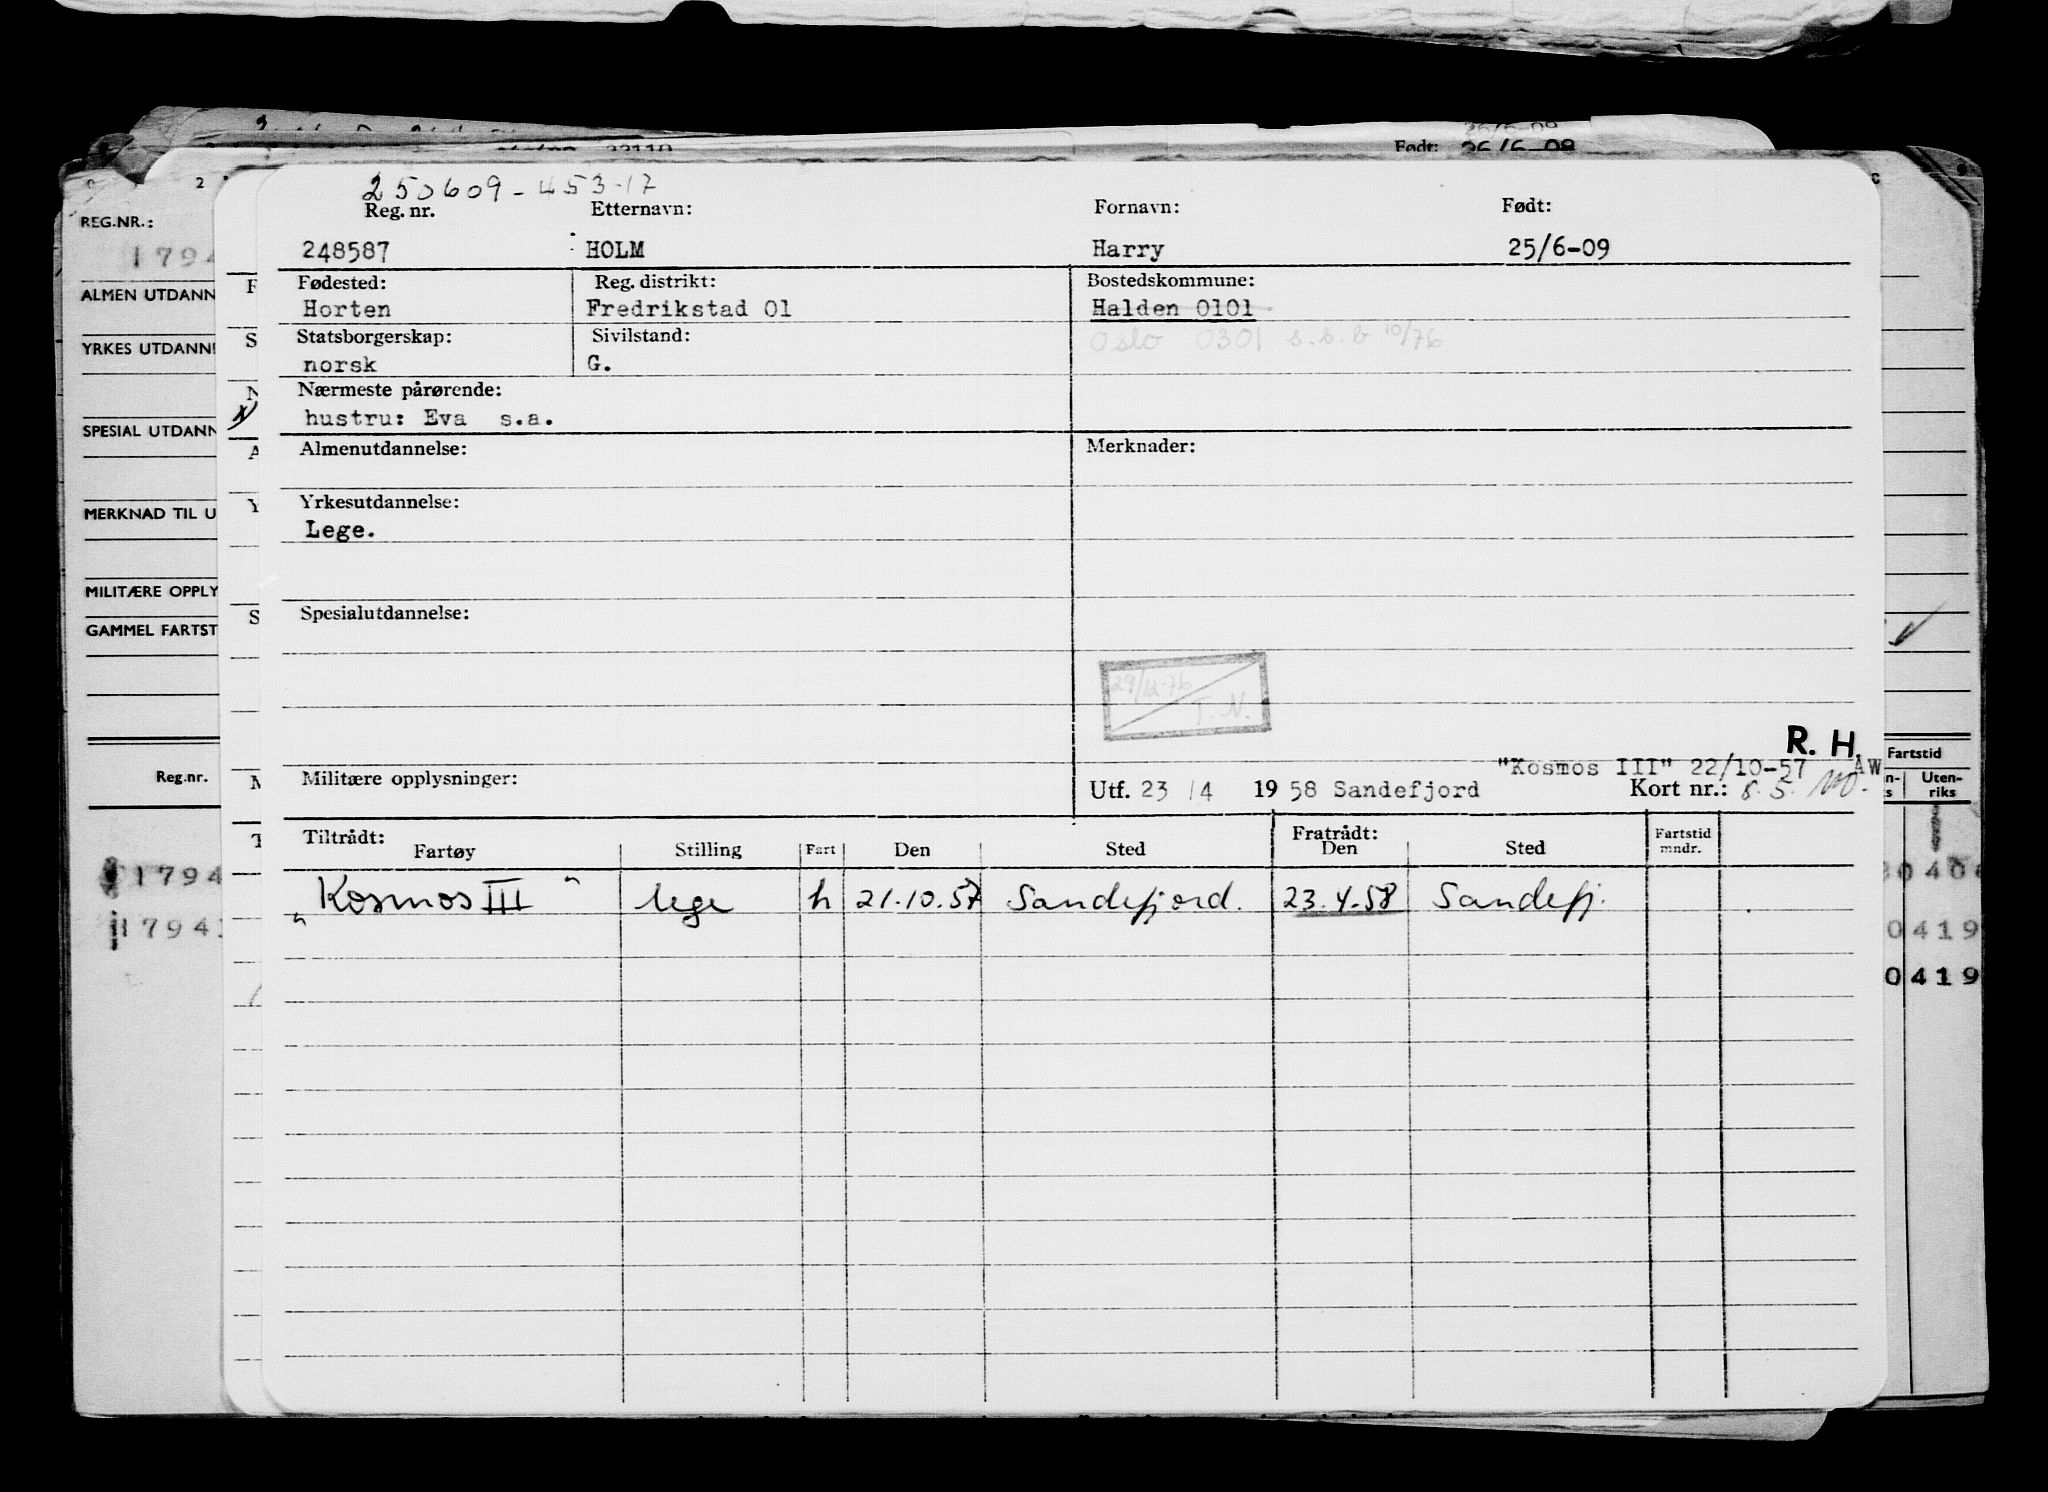 Født: 26/6-09
250609-453-17
Reg. nr. Etternavn: Fornavn: Født:
248587 HOLM Harry 25/6-09
Fødested: Reg. distrikt: Bostedskommune:
Horten Fredrikstad 01 Halden 0101
Statsborgerskap: Sivilstand: Oslo 0301 s.s.b 10/76
norsk G.
Nærmeste pårørende:
hustru: Eva s.a.
Almenutdannelse: Merknader:
Yrkesutdannelse:
Lege.
Spesialutdannelse:
29/12-76
T.N.
R. H.
"Kosmos III" 22/10-57 AW
Militære opplysninger: Utf. 23 /4 19 58 Sandefjord Kort nr.: 8.5.
Tiltrådt: Fratrådt:
Fartøy Stilling Fart Den Sted Den Sted Fartstid mndr.
"Kosmos III" lege h 21.10.57 Sandefjord. 23.4.58 Sandefj.
REG.NR.:
1794
ALMEN UTDANN
YRKES UTDANN
SPESIAL UTDANN
MERKNAD TIL U
MILITÆRE OPPLY
GAMMEL FARTST
Reg.nr.
1794
1794
Fartstid
Uten-
riks
0419
0419